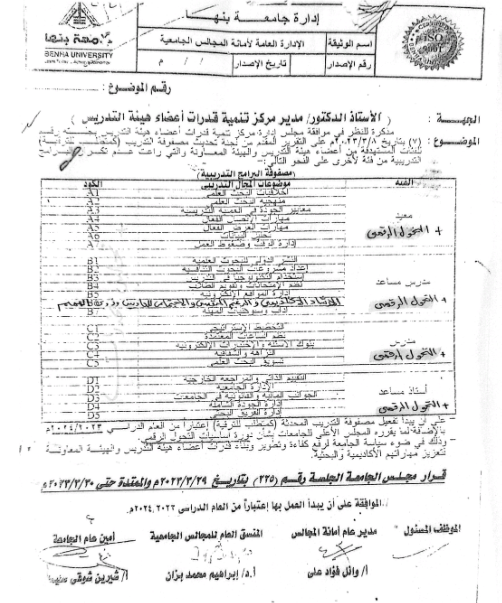 إدارة جامعة بنها
جامعة بنها
BENHA UNIVERSITY
اسم الوثيقة
الإدارة العامة لأمانة المجالس الجامعية
رقم الإصدار
تاريخ الإصدار
/ / م
ISO
9001
رقم الموضوع :
الجهة : (الأستاذ الدكتور/ مدير مركز تنمية قدرات أعضاء هيئة التدريس)
الموضوع : مذكرة للنظر في موافقة مجلس إدارة مركز تنمية قدرات أعضاء هيئة التدريس بجلسته رقم
(٧) بتاريخ ٢٠٢٣/٣/٨م على التقرير المقدم من لجنة تحديث مصفوفة التدريب (كمتطلب للترقية)
للفئات المستهدفة من أعضاء هيئة التدريس والهيئة المعاونة والتي راعت عدم تكرار البرامج
التدريبية من فئة لأخرى على النحو التالي:-
مصفوفة البرامج التدريبية
الفئة
موضوعات المجال التدريبي
الكود
معيد
+ التحول الرقمي
أخلاقيات البحث العلمي A1
منهجية البحث العلمي A2
معايير الجودة في العملية التدريسية
مهارات العرض الفعال A5
A6
إدارة الوقت وضغوط العمل A7
مدرس مساعد
+ التحول الرقمي
النشر الدولي للبحوث العلمية B1
إعداد مشروعات البحوث التنافسية B2
إستخدام التكنولوجيا في التدريس B3
نظم الإمتحانات وتقويم الطلاب B4
إدارة المواقع الإلكترونية B5
آداب وسلوكيات المهنة B7
مدرس
+ التحول الرقمي
التخطيط الإستراتيجي C1
نظم الساعات المعتمدة C2
بنوك الأسئلة والإختبارات الإلكترونية C3
النزاهة والشفافية C4
تسويق البحث العلمي C5
أستاذ مساعد
+ التحول الرقمي
التقييم الذاتي والمراجعة الخارجية D1
الإدارة الجامعية D2
الجوانب المالية والقانونية في الجامعات D3
إدارة الجودة الشاملة D4
إدارة الفريق البحثي D5
- على أن يبدأ تفعيل مصفوفة التدريب المحدثة (كمتطلب للترقية) إعتباراً من العام الدراسي ٢٠٢٤/٢٠٢٣م
بالإضافة لما يقرره المجلس الأعلى للجامعات بشأن دورة أساسيات التحول الرقمي.
- وذلك في ضوء سياسة الجامعة لرفع كفاءة وتطوير وبناء قدرات أعضاء هيئة التدريس والهيئة المعاونة
تعزيز مهاراتهم الأكاديمية والبحثية.
قرار مجلس الجامعة الجلسة رقم (٢٢٥) بتاريخ ٢٠٢٣/٣/٢٩م والممتدة حتى ٢٠٢٣/٣/٣٠م
الموافقة على أن يبدأ العمل بها إعتباراً من العام الدراسى ٢٠٢٤،٢٠٢٣م.
الموظف المسئول
مدير عام أمانة المجالس
المنسق العام للمجالس الجامعية
أمين عام الجامعة
أ/ وائل فؤاد على
أ.د/ إبراهيم محمد بزان
أ/ شيرين شوقى